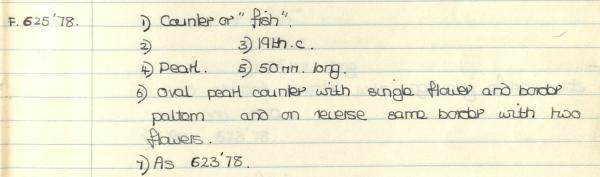 F. 625'78. 1) Counter or "fish".
2) 3) 19th.c.
4) Pearl. 5) 50mm. long.
6) Oval pearl counter with single flower and border
pattern and on reverse same border with two
flowers.
7) As 623'78.